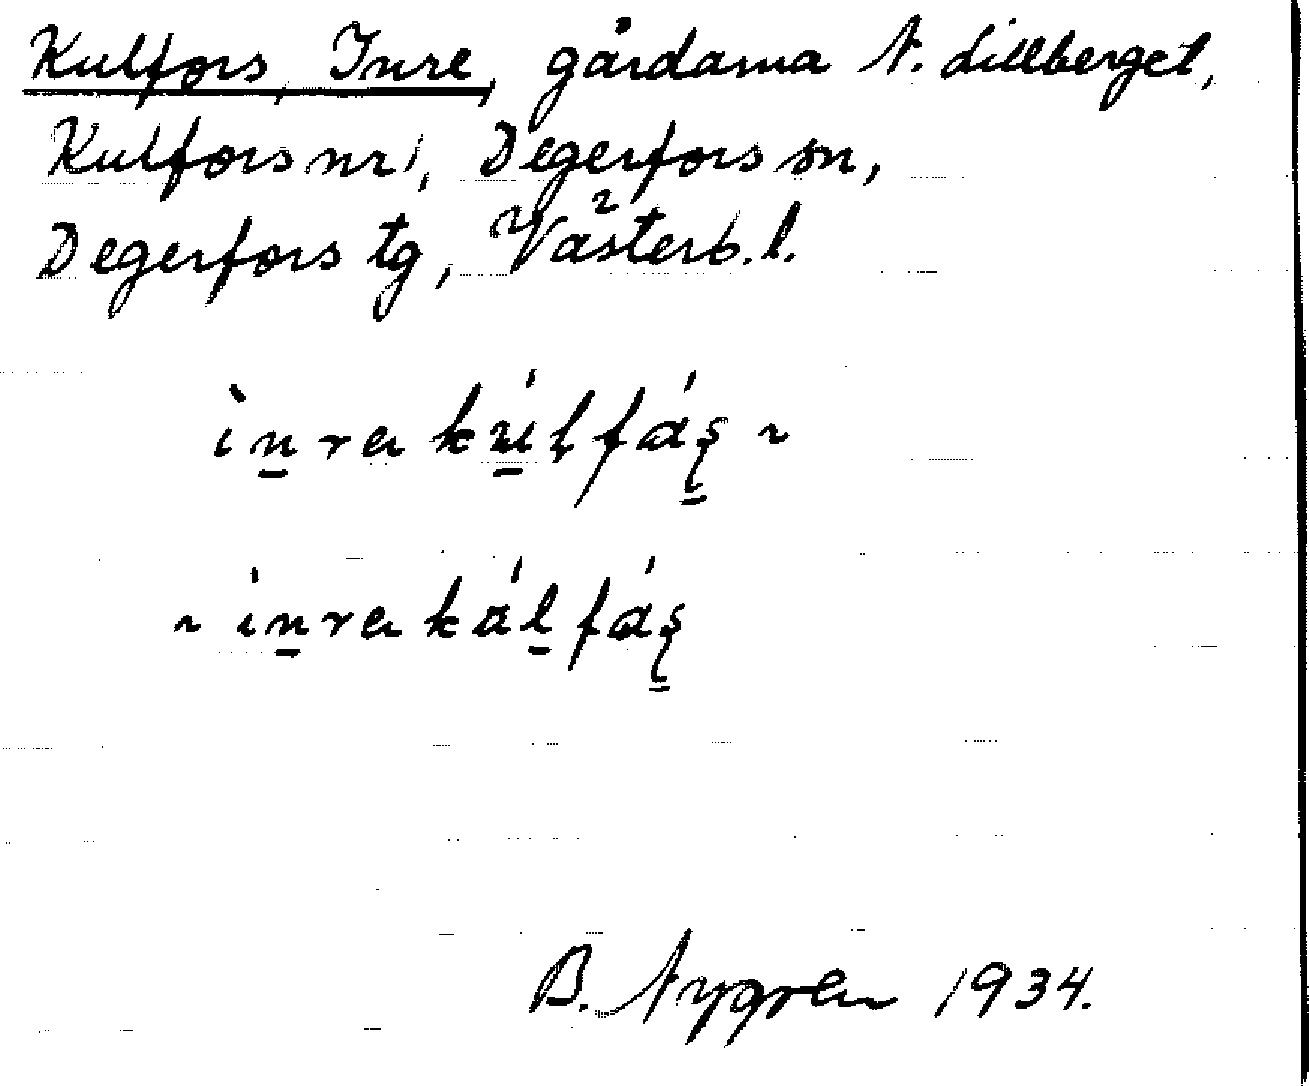 Kulfors, Inre, gårdarna N. Lillberget,
Kulfors nr 1, Degerfors sn,
Degerfors tg, Västerb. l.
ìn̲ra kú̲lfás̲ ~
~ ìn̲ra kál̲fás̲
B. Nygren 1934.